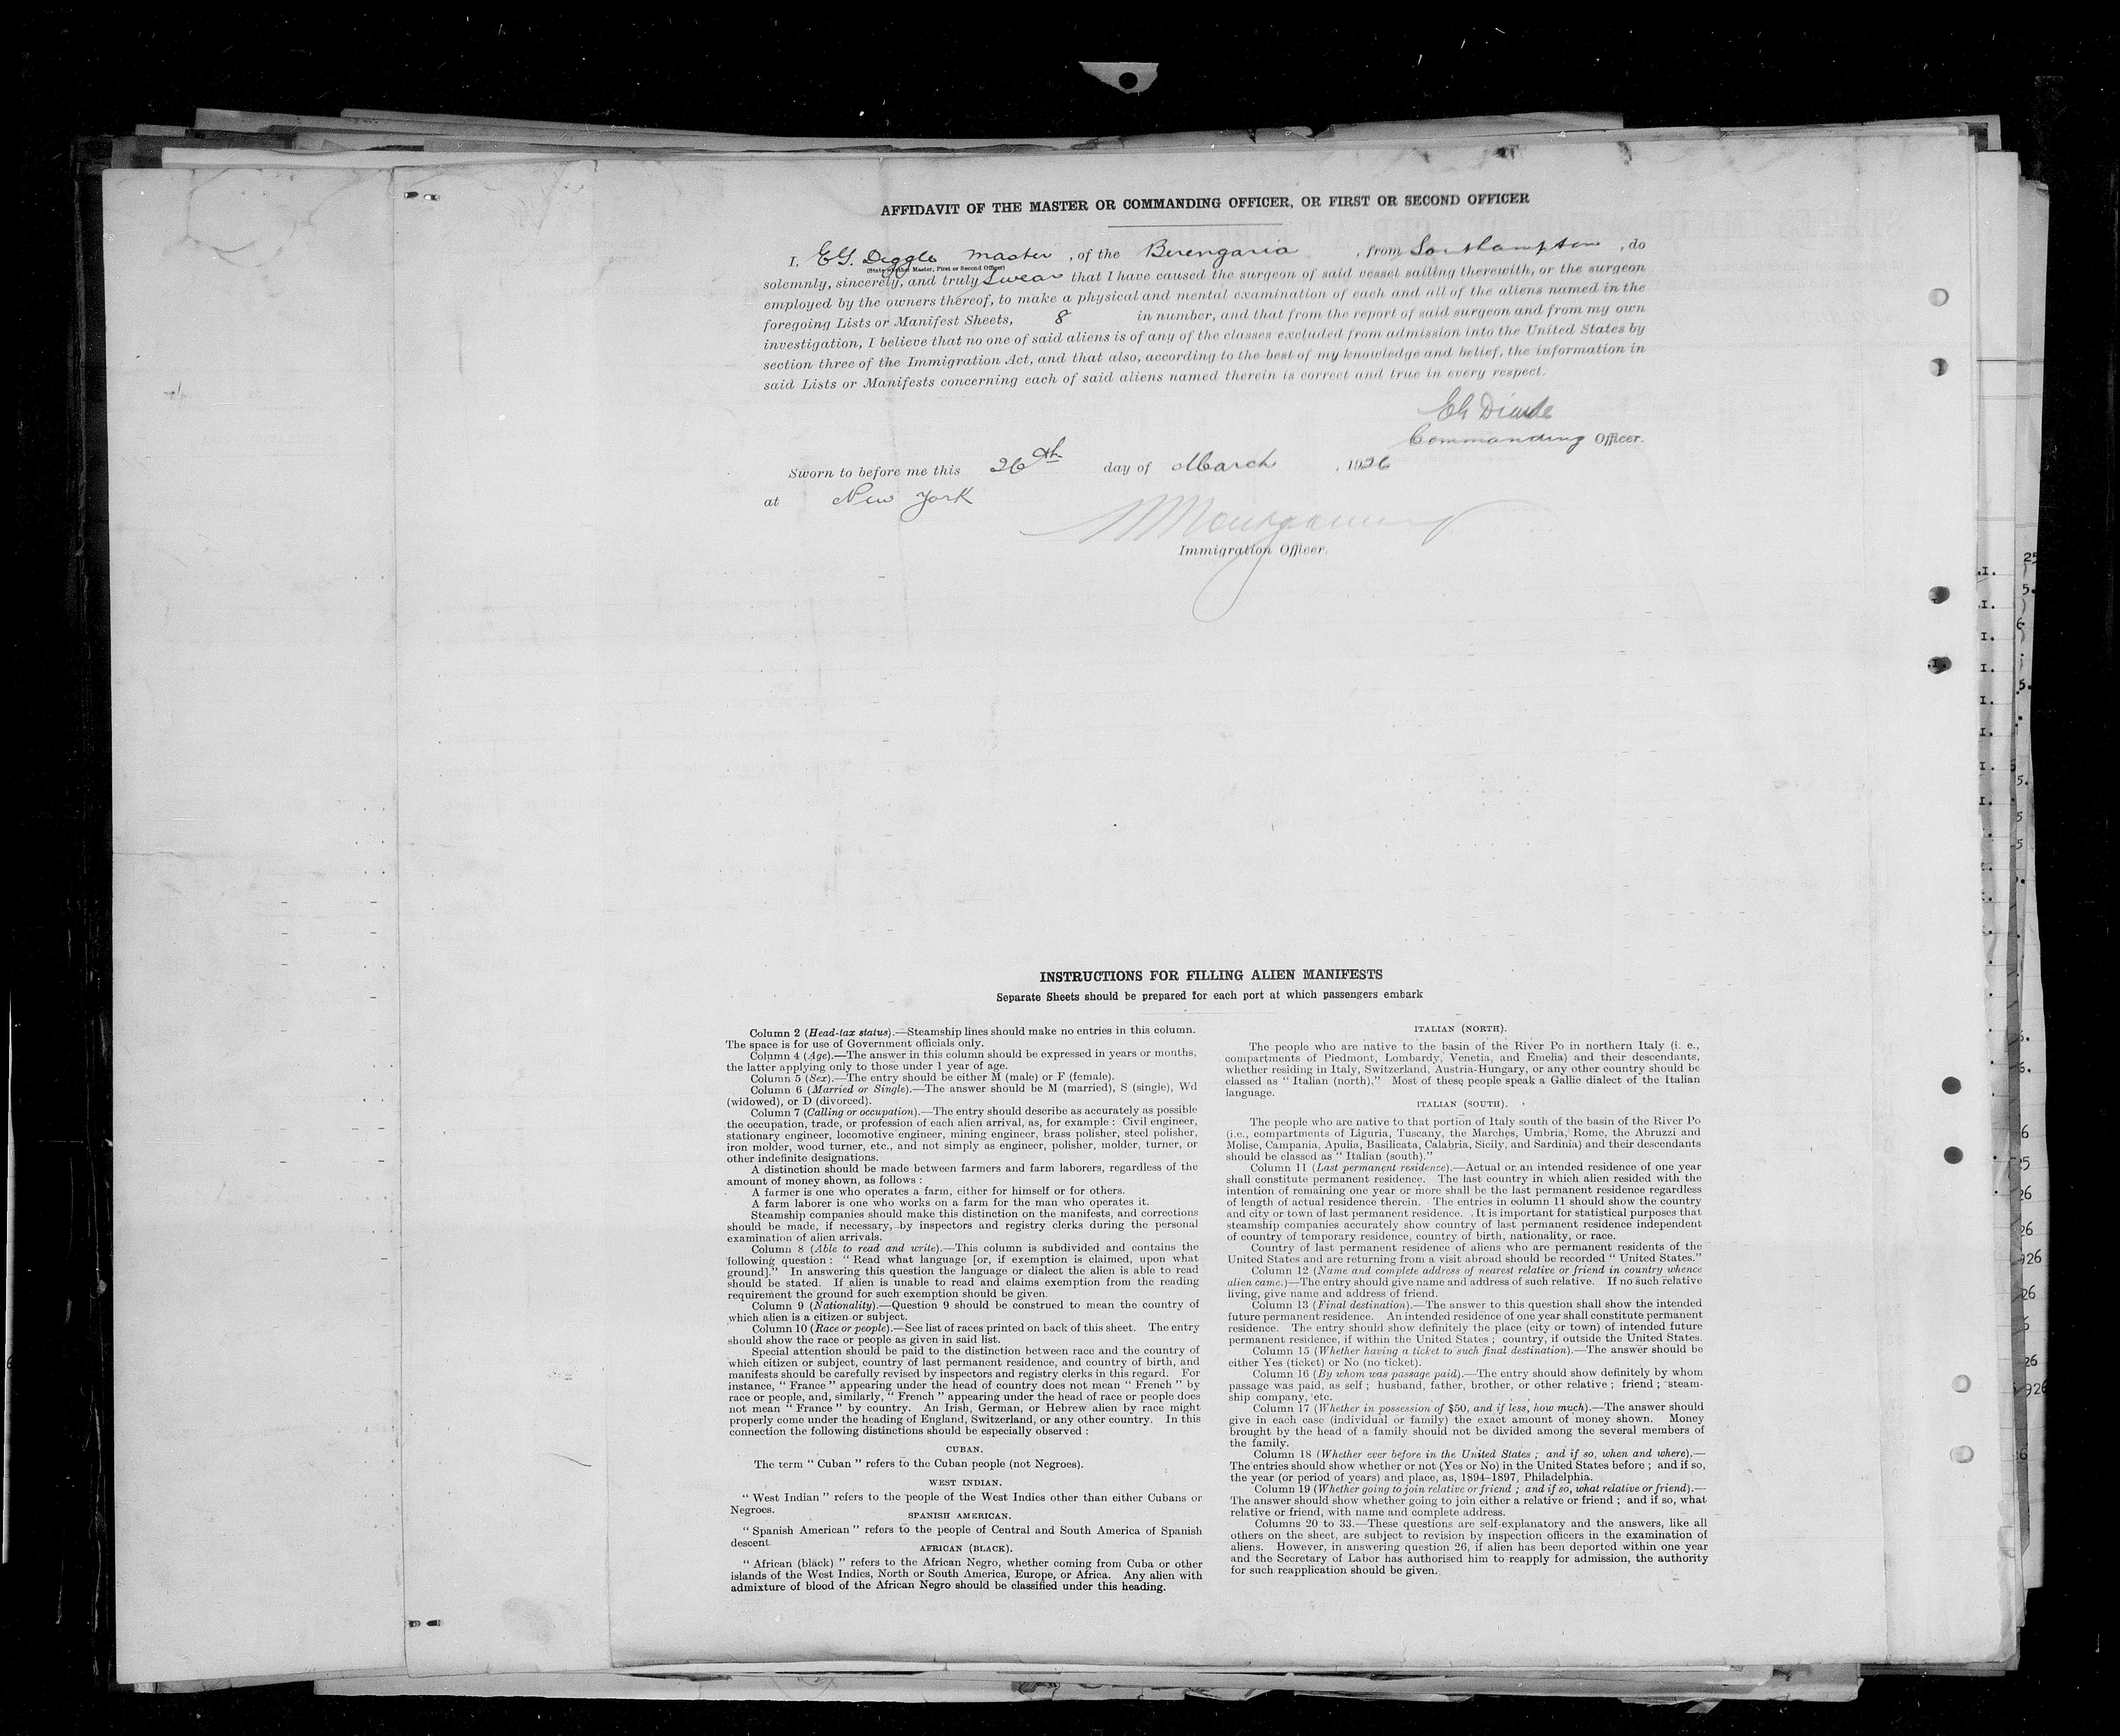 AFFIDAVIT OF THE MASTER OR COMMANDING OFFICER, OR FIRST OR SECOND OFFICER
I, EG. Diggle Master, of the Berengaria, from Southampton, do
(State whether Master, First or Second Officer)
solemnly, sincerely, and truly Swear that I have caused the surgeon of said vessel sailing therewith, or the surgeon
employed by the owners thereof, to make a physical and mental examination of each and all of the aliens named in the
foregoing Lists or Manifest Sheets, 8 in number, and that from the report of said surgeon and from my own
investigation, I believe that no one of said aliens is of any of the classes excluded from admission into the United States by
section three of the Immigration Act, and that also, according to the best of my knowledge and belief, the information in
said Lists or Manifests concerning each of said aliens named therein is correct and true in every respect.
EG Diggle
Commanding Officer.
Sworn to before me this 26th day of March, 1926
at New York
Montgomery
Immigration Officer.
INSTRUCTIONS FOR FILLING ALIEN MANIFESTS
Separate Sheets should be prepared for each port at which passengers embark
Column 2 (Head-tax status).—Steamship lines should make no entries in this column.
The space is for use of Government officials only.
Column 4 (Age).—The answer in this column should be expressed in years or months,
the latter applying only to those under 1 year of age.
Column 5 (Sex).—The entry should be either M (male) or F (female).
Column 6 (Married or Single).—The answer should be M (married), S (single), Wd
(widowed), or D (divorced).
Column 7 (Calling or occupation).—The entry should describe as accurately as possible
the occupation, trade, or profession of each alien arrival, as, for example : Civil engineer,
stationary engineer, locomotive engineer, mining engineer, brass polisher, steel polisher,
iron molder, wood turner, etc., and not simply as engineer, polisher, molder, turner, or
other indefinite designations.
A distinction should be made between farmers and farm laborers, regardless of the
amount of money shown, as follows :
A farmer is one who operates a farm, either for himself or for others.
A farm laborer is one who works on a farm for the man who operates it.
Steamship companies should make this distinction on the manifests, and corrections
should be made, if necessary, by inspectors and registry clerks during the personal
examination of alien arrivals.
Column 8 (Able to read and write).—This column is subdivided and contains the
following question : “ Read what language [or, if exemption is claimed, upon what
ground].” In answering this question the language or dialect the alien is able to read
should be stated. If alien is unable to read and claims exemption from the reading
requirement the ground for such exemption should be given.
Column 9 (Nationality).—Question 9 should be construed to mean the country of
which alien is a citizen or subject.
Column 10 (Race or people).—See list of races printed on back of this sheet. The entry
should show the race or people as given in said list.
Special attention should be paid to the distinction between race and the country of
which citizen or subject, country of last permanent residence, and country of birth, and
manifests should be carefully revised by inspectors and registry clerks in this regard. For
instance, “ France ” appearing under the head of country does not mean “ French ” by
race or people, and, similarly, “ French ” appearing under the head of race or people does
not mean “ France ” by country. An Irish, German, or Hebrew alien by race might
properly come under the heading of England, Switzerland, or any other country. In this
connection the following distinctions should be especially observed :
CUBAN.
The term “ Cuban ” refers to the Cuban people (not Negroes).
WEST INDIAN.
“ West Indian ” refers to the people of the West Indies other than either Cubans or
Negroes.
SPANISH AMERICAN.
“ Spanish American ” refers to the people of Central and South America of Spanish
descent.
AFRICAN (BLACK).
“ African (black) ” refers to the African Negro, whether coming from Cuba or other
islands of the West Indies, North or South America, Europe, or Africa. Any alien with
admixture of blood of the African Negro should be classified under this heading.
ITALIAN (NORTH).
The people who are native to the basin of the River Po in northern Italy (i. e.,
compartments of Piedmont, Lombardy, Venetia, and Emelia) and their descendants,
whether residing in Italy, Switzerland, Austria-Hungary, or any other country should be
classed as “ Italian (north).” Most of these people speak a Gallic dialect of the Italian
language.
ITALIAN (SOUTH).
The people who are native to that portion of Italy south of the basin of the River Po
(i.e., compartments of Liguria, Tuscany, the Marches, Umbria, Rome, the Abruzzi and
Molise, Campania, Apulia, Basilicata, Calabria, Sicily, and Sardinia) and their descendants
should be classed as “ Italian (south).”
Column 11 (Last permanent residence).—Actual or an intended residence of one year
shall constitute permanent residence. The last country in which alien resided with the
intention of remaining one year or more shall be the last permanent residence regardless
of length of actual residence therein. The entries in column 11 should show the country
and city or town of last permanent residence. It is important for statistical purposes that
steamship companies accurately show country of last permanent residence independent
of country of temporary residence, country of birth, nationality, or race.
Country of last permanent residence of aliens who are permanent residents of the
United States and are returning from a visit abroad should be recorded “ United States.”
Column 12 (Name and complete address of nearest relative or friend in country whence
alien came.)—The entry should give name and address of such relative. If no such relative
living, give name and address of friend.
Column 13 (Final destination).—The answer to this question shall show the intended
future permanent residence. An intended residence of one year shall constitute permanent
residence. The entry should show definitely the place (city or town) of intended future
permanent residence, if within the United States ; country, if outside the United States.
Column 15 (Whether having a ticket to such final destination).—The answer should be
either Yes (ticket) or No (no ticket).
Column 16 (By whom was passage paid).—The entry should show definitely by whom
passage was paid, as self ; husband, father, brother, or other relative ; friend ; steam-
ship company, etc.
Column 17 (Whether in possession of $50, and if less, how much).—The answer should
give in each case (individual or family) the exact amount of money shown. Money
brought by the head of a family should not be divided among the several members of
the family.
Column 18 (Whether ever before in the United States ; and if so, when and where).—
The entries should show whether or not (Yes or No) in the United States before ; and if so,
the year (or period of years) and place, as, 1894–1897, Philadelphia.
Column 19 (Whether going to join relative or friend ; and if so, what relative or friend).—
The answer should show whether going to join either a relative or friend ; and if so, what
relative or friend, with name and complete address.
Columns 20 to 33.—These questions are self-explanatory and the answers, like all
others on the sheet, are subject to revision by inspection officers in the examination of
aliens. However, in answering question 26, if alien has been deported within one year
and the Secretary of Labor has authorised him to reapply for admission, the authority
for such reapplication should be given.